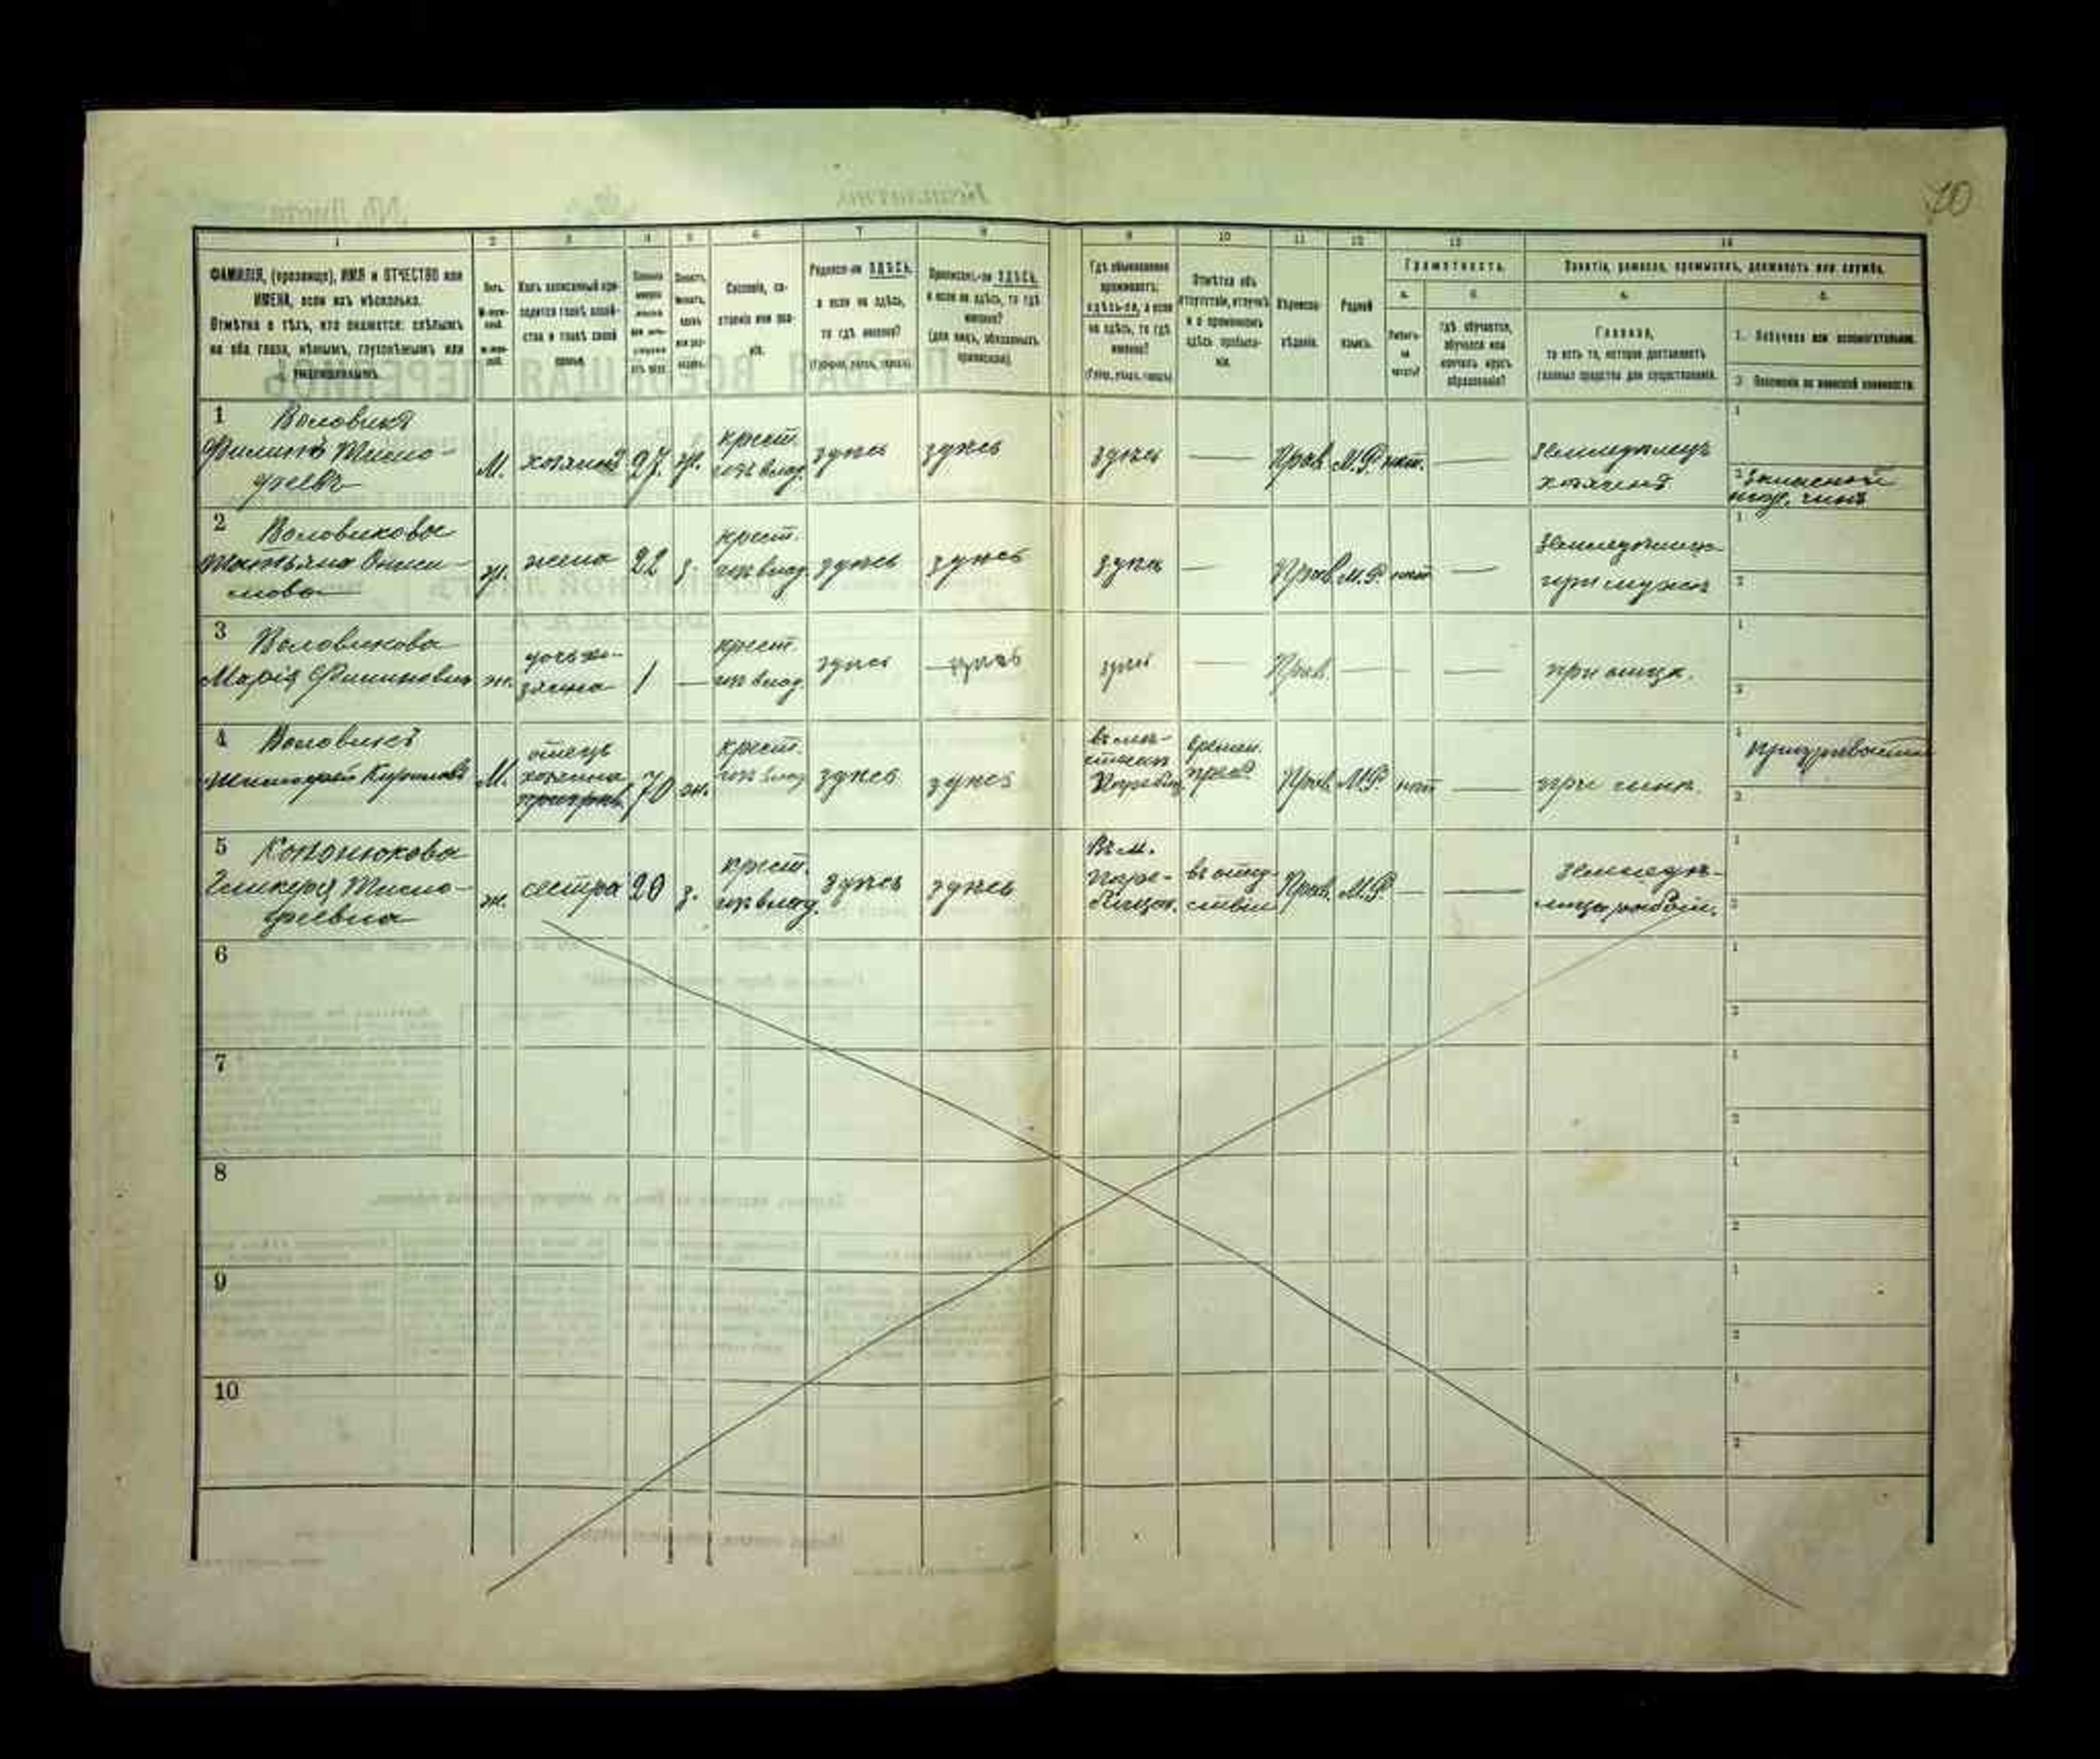 10
1 2 3 4 5 6 7 8 9 10 11 12 13 14
ФАМИЛІЯ, (прозвище), ИМЯ и ОТЧЕСТВО или
ИМЕНА, если ихъ нѣсколько.
Отмѣтка о тѣхъ, кто окажется: слѣпымъ
на оба глаза, нѣмымъ, глухонѣмымъ или
умалишеннымъ.
Полъ.
М-муж-
ской.
Ж-жен-
скій.
Какъ записанный при-
ходится главѣ хозяй-
ства и главѣ своей
семьи.
Холостъ,
женатъ,
вдовъ
или раз-
веденъ.
Сословіе, со-
стояніе или зва-
ніе.
Родился-ли ЗДѢСЬ,
а если не здѣсь,
то гдѣ именно?
(Губернія, уѣздъ, городъ).
Приписанъ-ли ЗДѢСЬ,
а если не здѣсь, то гдѣ
именно?
(для лицъ, обязанныхъ
припискою).
Гдѣ обыкновенно
проживаетъ:
здѣсь-ли, а если
не здѣсь, то гдѣ
именно?
(Губер., уѣздъ, городъ).
Отмѣтка объ
отсутствіи, отлучкѣ
и о временномъ
здѣсь пребыва-
ніи.
Вѣроиспо-
вѣданіе.
Родной
языкъ.
Грамотность.
а.
Умѣетъ-
ли
читать?
б.
гдѣ обучается,
обучался или
кончилъ курсъ
образованія?
Занятіе, ремесло, промыселъ, должность или служба.
а.
Главное,
то есть то, которое доставляетъ
главныя средства для существованія.
б.
1. Побочное или вспомогательное.
2. Положеніе по воинской повинности.
1 Воловикъ
Филипъ Тимо-
фѣевъ
М. хозяинъ 27 ж. крест. здѣсь здѣсь здѣсь — Прав. М.Р. нѣт. —
Земледѣлецъ
хозяинъ
1
2 Запасной
чинъ
2 Воловикова
Татьяна Ониси-
мова
ж. жена 22 з. крест. здѣсь здѣсь здѣсь — Прав. М.Р. нѣт —
при мужѣ
1
2
3 Воловикова
Марія Филиповна
ж. дочь хо-
зяина
1 — крест. здѣсь здѣсь здѣсь — Прав. — — —
при отцѣ.
1
2
4 Воловикъ
Тимофей Кириловъ
М. отецъ
хозяина
70 ж. крест. здѣсь здѣсь
времен.
Прав. М.Р. нѣт —
при сынѣ.
1
2
5 Кононюкова
Гликерія Тимо-
фѣевна
ж. сестра 20 з. крест. здѣсь здѣсь
Въ м.
въ отсут-
ствіи
Прав. М.Р. — —
Земледѣ-
1
2
6
1
2
7
1
2
8
1
2
9
1
2
10
1
2